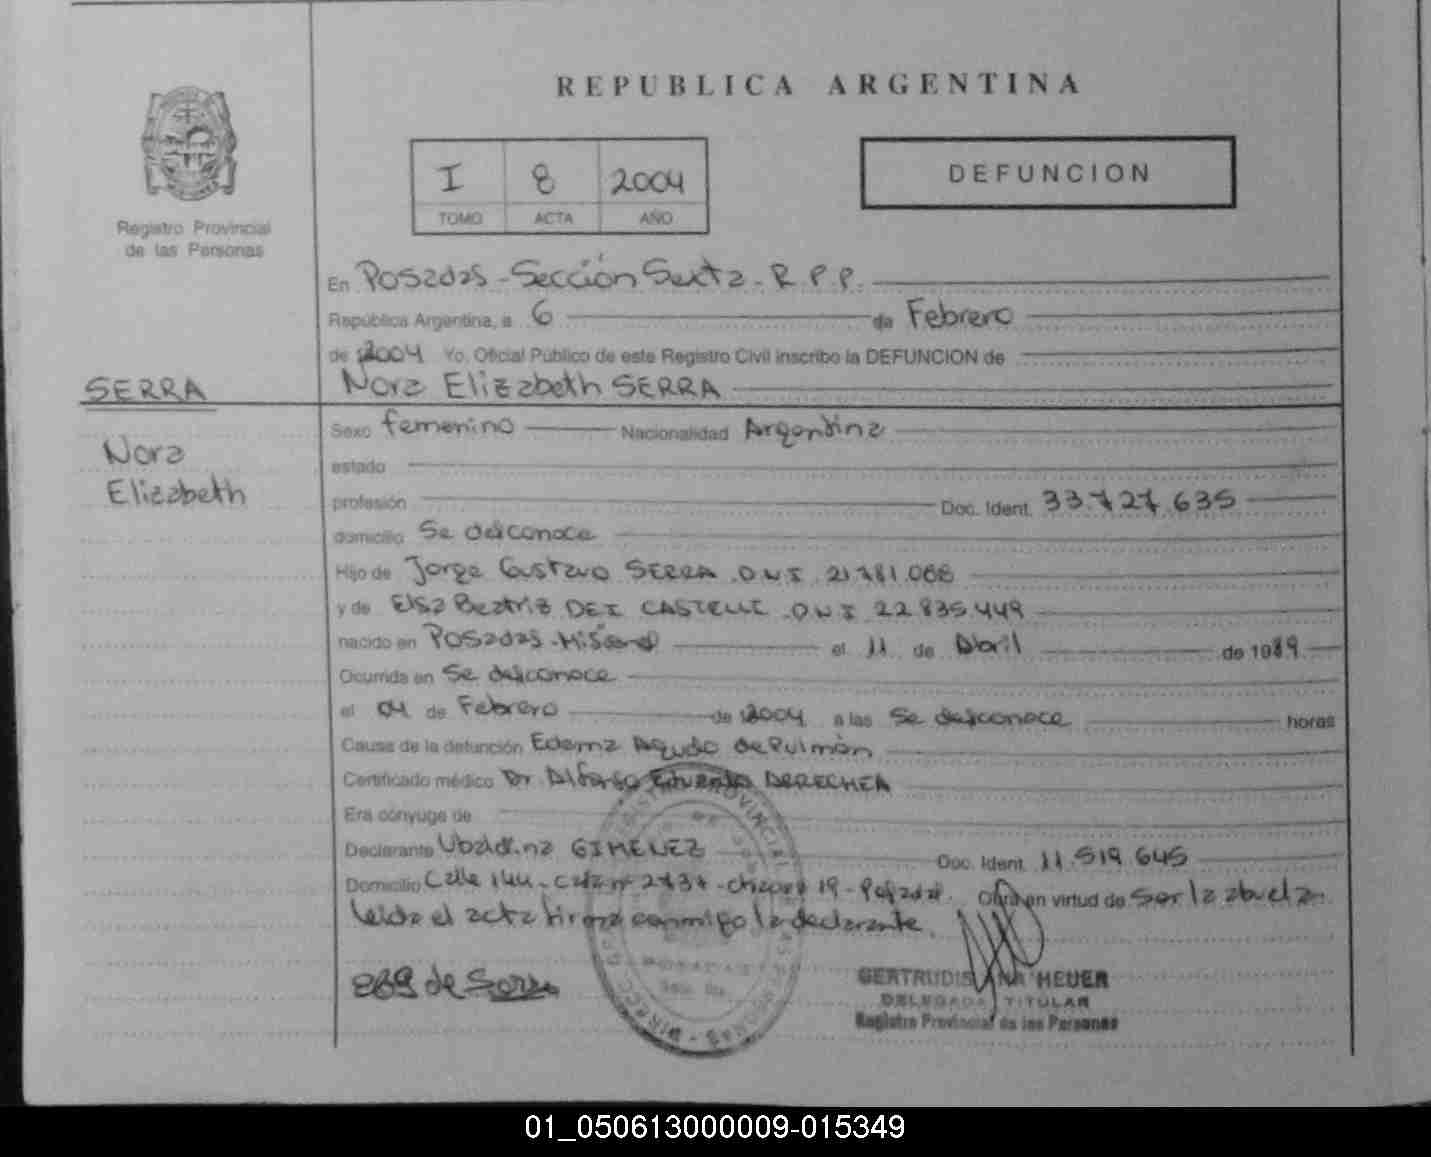 REPUBLICA ARGENTINA
I 8 2004
TOMO ACTA AÑO
DEFUNCION
Registro Provincial
de las Personas
En Posadas - Sección Sexta - R.P.P.
República Argentina, a 6 de Febrero
de 2004 Yo, Oficial Público de este Registro Civil inscribo la DEFUNCION de
SERRA
Nora Elizabeth SERRA
Nora
Elizabeth
Sexo femenino Nacionalidad Argentina
estado
profesión Doc. Ident. 33.727.635
domicilio Se desconoce
Hijo de Jorge Gustavo SERRA D N I 21.781.068
y de Elsa Beatriz DEI CASTELLI D N I 22.835.449
nacido en Posadas - Misiones el 11 de Abril de 1989
Ocurrida en Se desconoce
el 04 de Febrero de 2004 a las Se desconoce horas
Causa de la defunción Edema Agudo de Pulmón
Certificado médico Dr. Alfonso DERECHEA
Era cónyuge de
Declarante Ubaldina GIMENEZ Doc. Ident. 11.519.645
Domicilio Calle 144 - Casa nº 2737 - Chacra 19 - Posadas. Obra en virtud de Ser la abuela.
leida el acta firma conmigo la declarante.
de Serra
GERTRUDIS ANA HEUER
DELEGADA TITULAR
Registro Provincial de las Personas
01_050613000009-015349